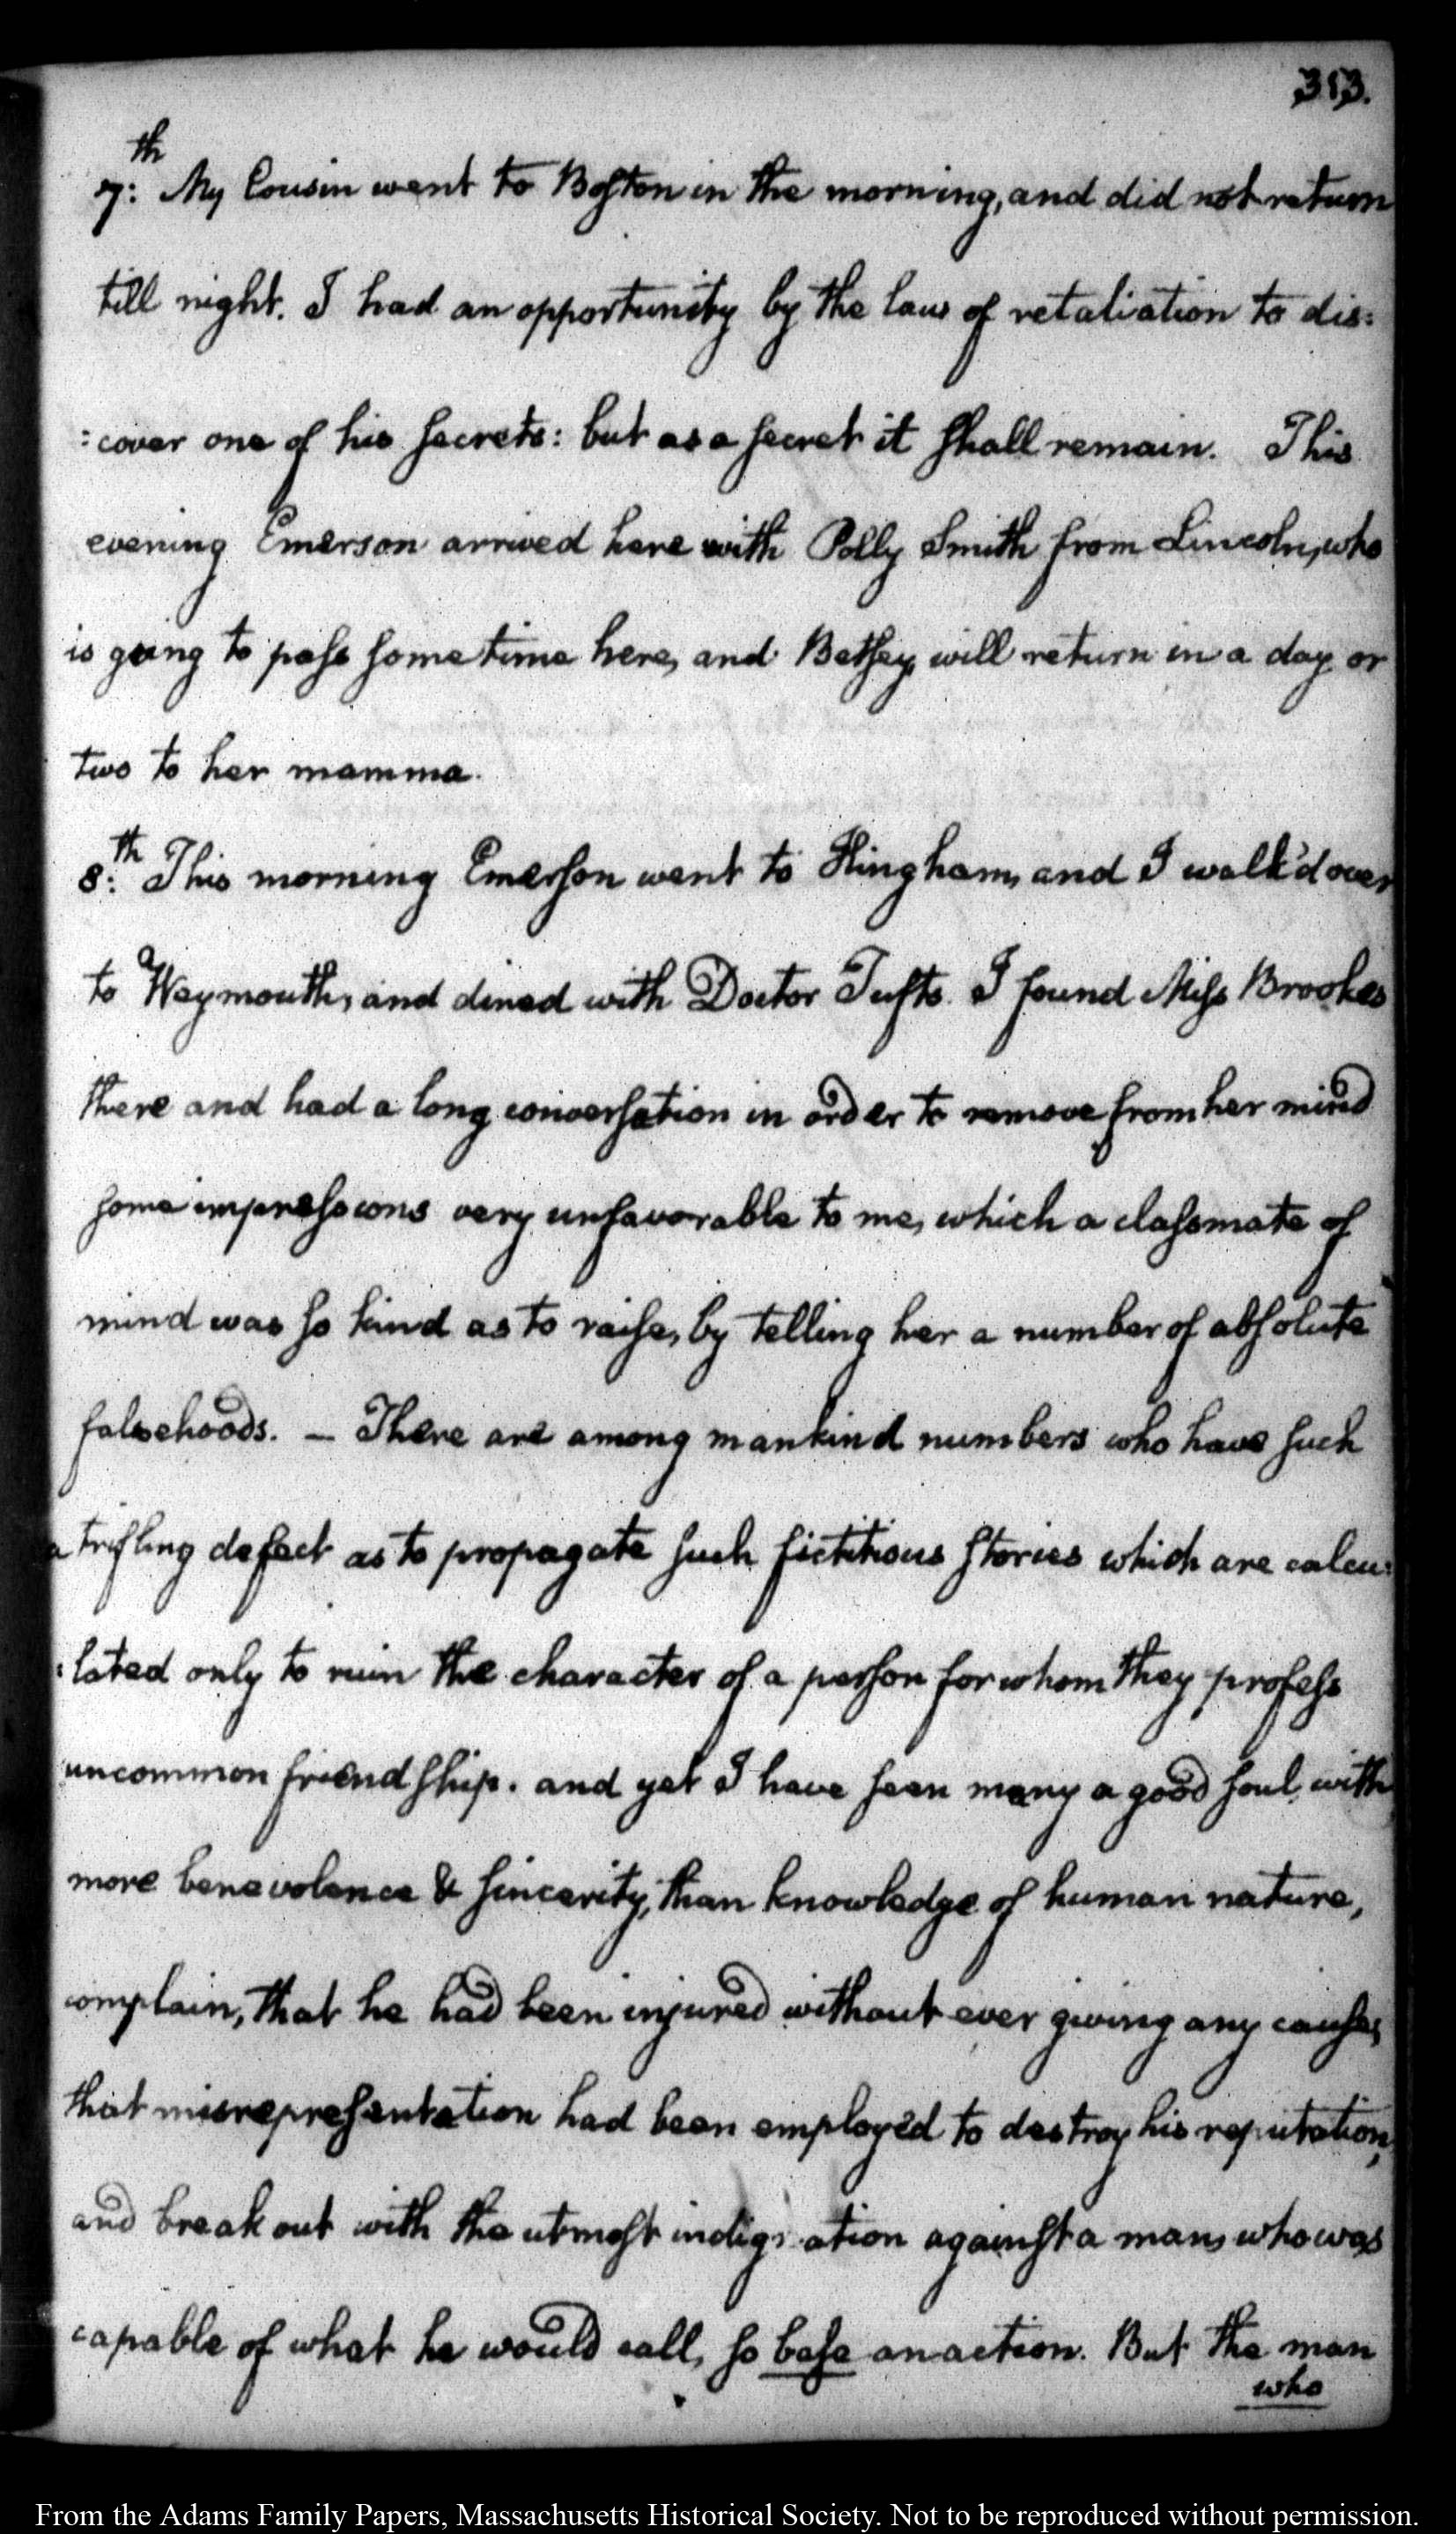 313.
7:th My Cousin went to Boston in the morning, and did not return
till night. I had an opportunity by the law of retaliation to dis:
:cover one of his secrets: but as a secret it shall remain. This
evening Emerson arrived here with Polly Smith from Lincoln, who
is going to pass some time here, and Betsey, will return in a day or
two to her mamma.
8:th This morning Emerson went to Hingham, and I walk'd over
to Weymouth, and dined with Doctor Tufts. I found Miss Brookes
there and had a long conversation in order to remove from her mind
some impressions very unfavorable to me, which a classmate of
mind was so kind as to raise, by telling her a number of absolute
falsehoods. — There are among mankind numbers who have such
a trifling defect as to propagate such fictitious stories which are calcu:
:lated only to ruin the character of a person for whom they profess
uncommon friendship. and yet I have seen many a good soul, with
more benevolence & sincerity, than knowledge of human nature,
complain, that he had been injured without ever giving any cause,
that misrepresentation had been employ'd to destroy his reputation,
and break out with the utmost indignation against a man, who was
capable of what he would call, so base an action. But the man
who
From the Adams Family Papers, Massachusetts Historical Society. Not to be reproduced without permission.